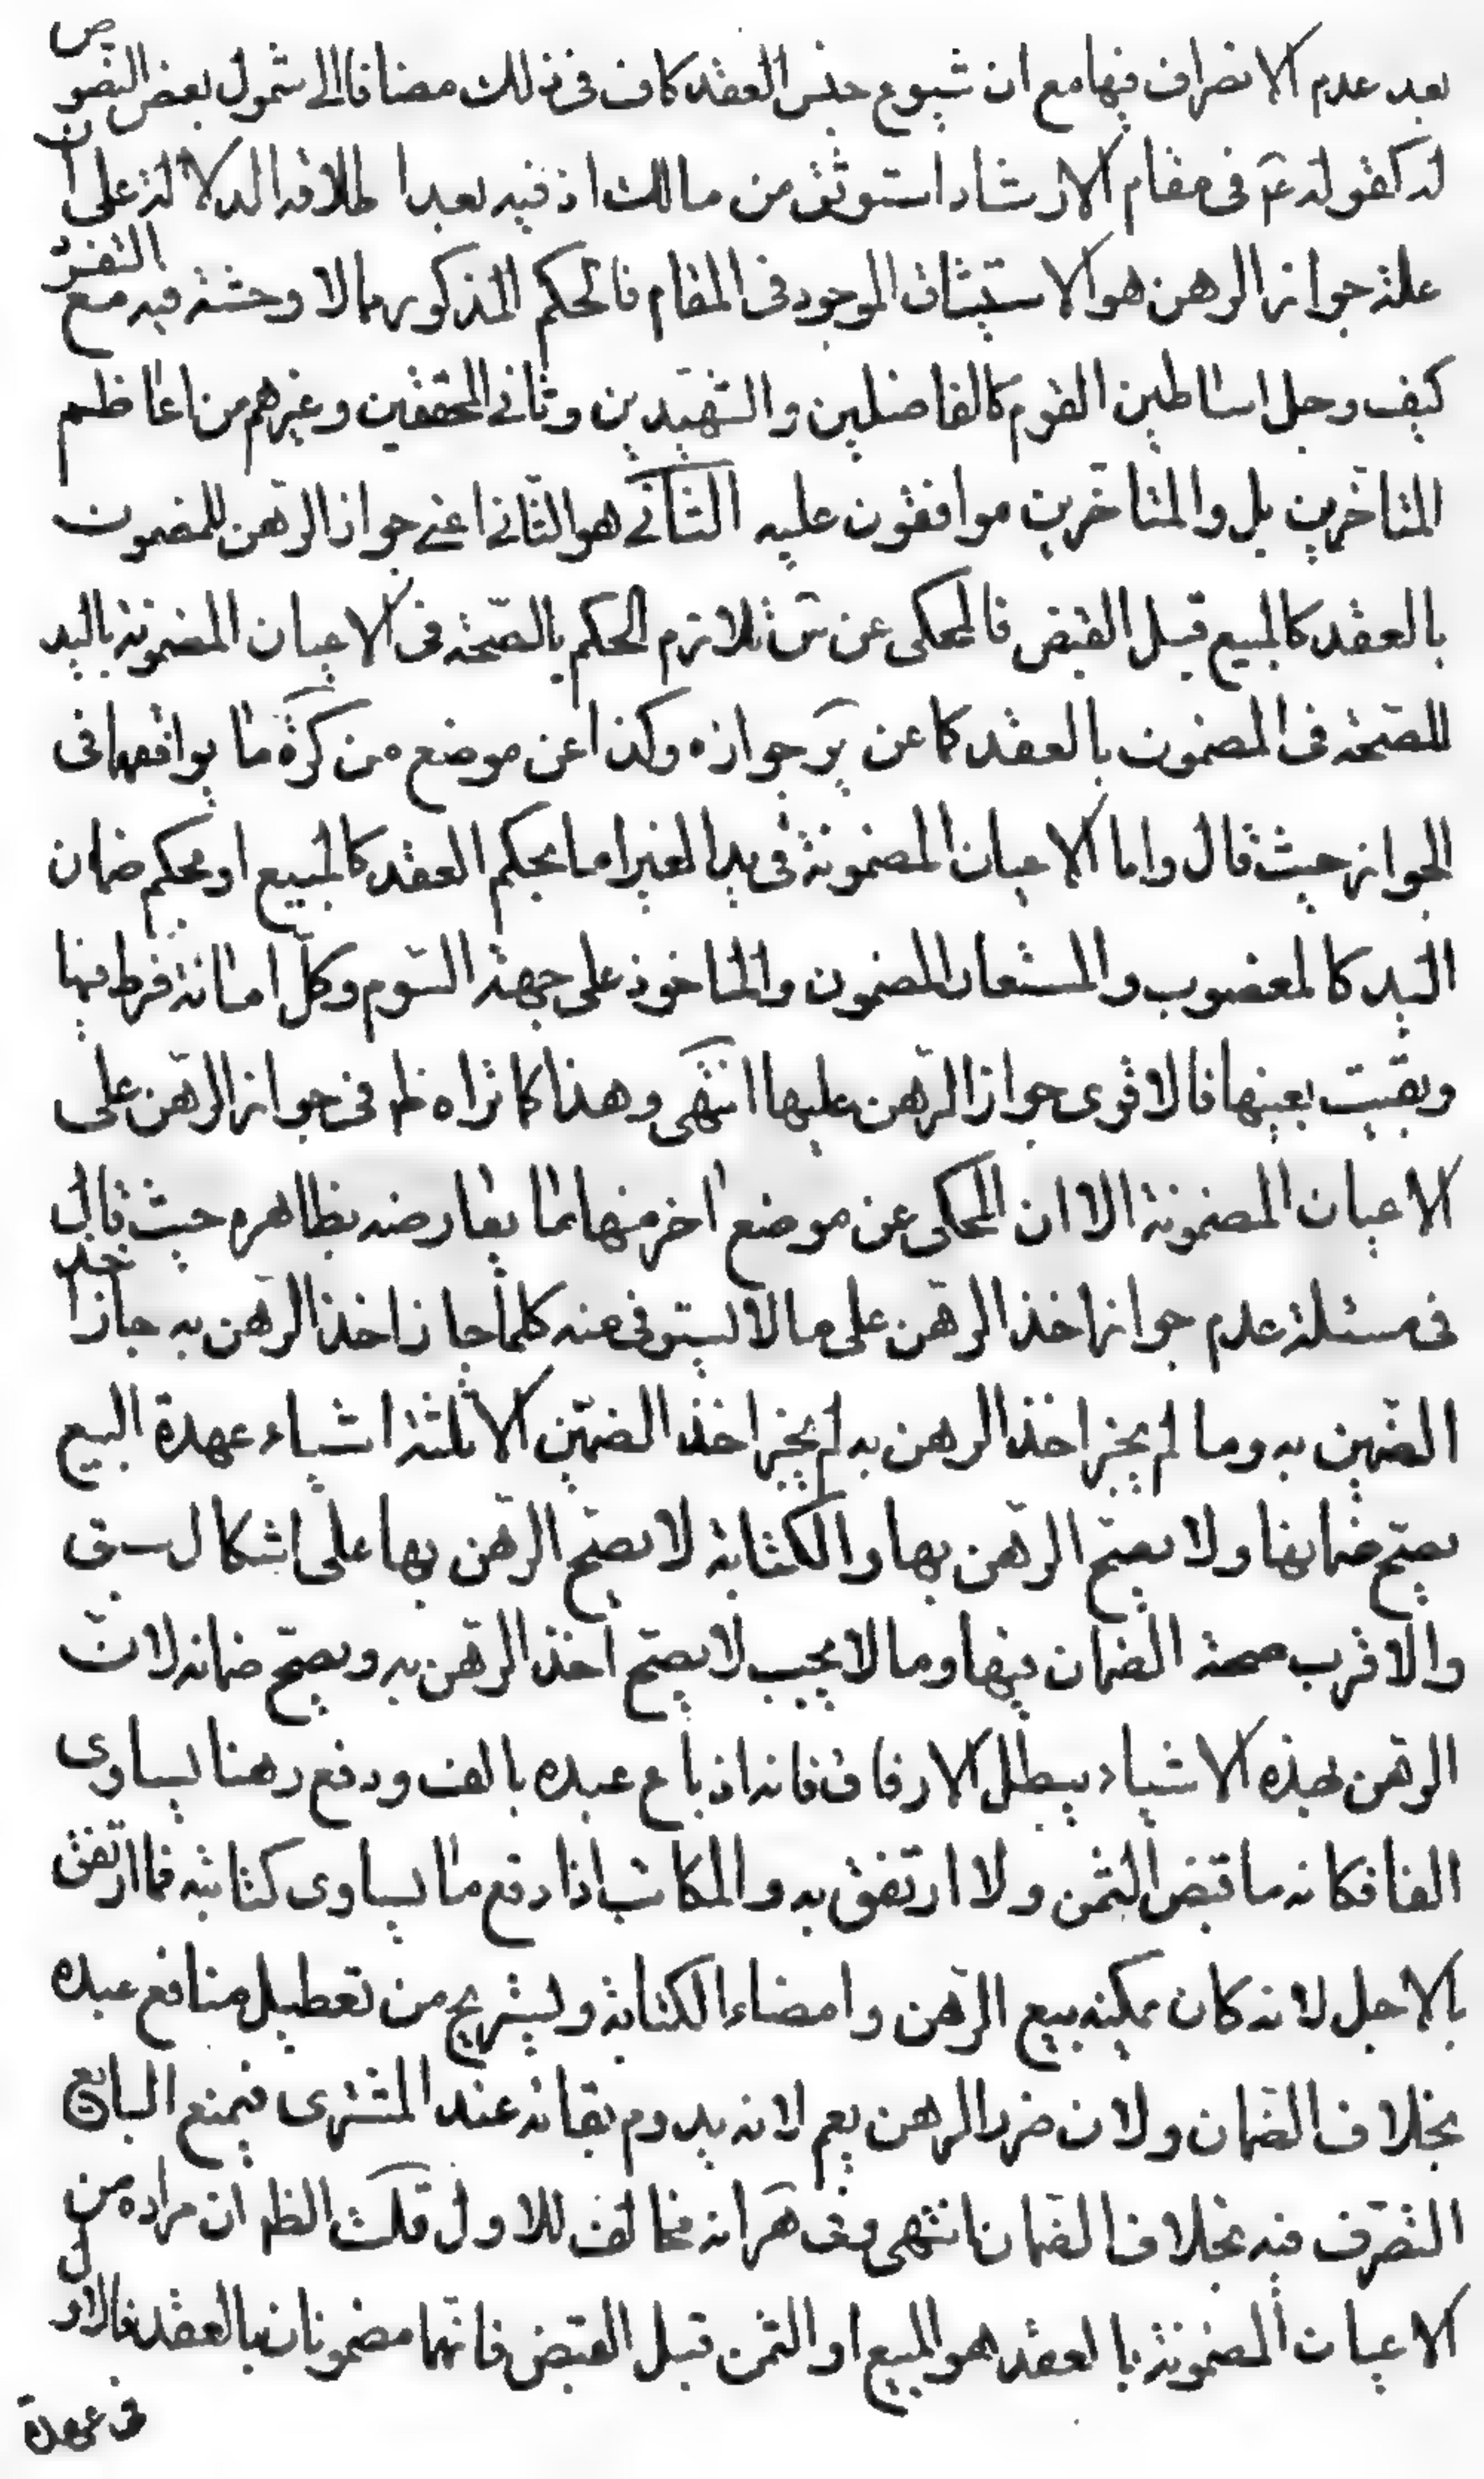 بعد عدم الانصراف فيها مع ان شيوع جنس العقد كاف فى ذلك مضافا الى شمول بعض النصوص
له كقوله عم فى مقام الارشاد استوثق من مالك اذ فيه بعد اطلاقه الدلالة على ان
علة جواز الرهن هو الاستيثاق الموجود فى المقام فالحكم المذكور مما لا وحشة فيه مع التفرد
كيف وجل اساطين القوم كالفاضلين والشهيدين وثانى المحققين وغيرهم من اعاظم
المتاخرين بل والمتاخرين موافقون عليه الثانى هو الثانى اعنى جواز الرهن للمضمون
بالعقد كالمبيع قبل القبض فالمحكى عن س تلازم الحكم بالصحة فى الاعيان المضمونة باليد
للصحة فى المضمون بالعقد كما عن ير جوازه وكذا عن موضع من كرة ما يوافقهما فى
الجواز حيث قال واما الاعيان المضمونة فى يد الغير اما بحكم العقد كالمبيع او بحكم ضمان
اليد كالمغصوب والمستعار المضمون والماخوذ على جهة السوم وكل امانة فرط فيها
وبقيت بعينها فالاقوى جواز الرهن عليها انتهى وهذا كما تراه ظ فى جواز الرهن على
الاعيان المضمونة الا ان المحكى عن موضع اخر منها مما يعارضه بظاهره حيث قال
فى مسئلة عدم جواز اخذ الرهن على ما لا يستوفى منه كلما جاز اخذ الرهن به جاز اخذ
الضمين به وما لم يجز اخذ الرهن به لم يجز اخذ الضمين الا ثلثة اشياء عهدة البيع
يصح ضمانها ولا يصح الرهن بها والكتابة لا يصح الرهن بها على اشكال سبق
والاقرب صحة الضمان فيها وما لا يجب لا يصح اخذ الرهن به ويصح ضمانه لان
الرهن بهذه الاشياء يبطل الارفاق فانه اذ باع عبده بالف ودفع رهنا يساوى
الفا فكانه ما قبض الثمن ولا ارتفق به والمكاتب اذا دفع ما يساوى كتابته فما ارتفق
بالاجل لانه كان يمكنه بيع الرهن وامضاء الكتابة ويستريح من تعطيل منافع عبده
بخلاف الضمان ولان ضرر الرهن يعم لانه يدوم بقائه عند المشترى فيمنع البائع
التصرف فيه بخلاف الضمان انتهى وف هر انه مخالف للاول قلت الظ ان مراده من
الاعيان المضمونة بالعقد هو المبيع او الثمن قبل القبض فانهما مضمونان بالعقد فالاول
فى عهدة